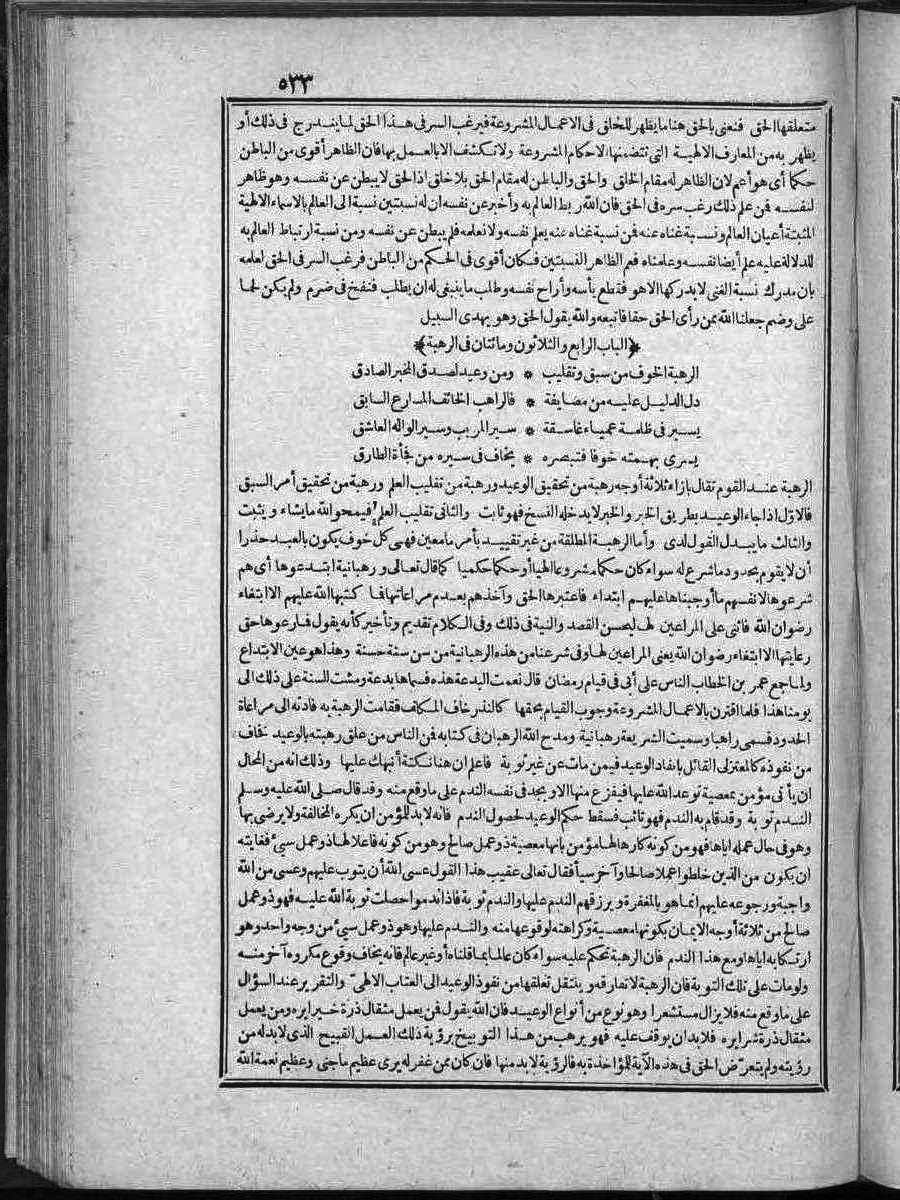 ٥٣٣
متعلقها الحق فنعنى بالحق هنا ما يظهر للخلق فى الاعمال المشروعة فيرغب السر فى هذا الحق لما يندرج فى ذلك أو
يظهر به من المعارف الالهية التى تتضمنها الاحكام المشروعة ولا تكشف الا بالعمل بها فان الظاهر أقوى من الباطن
حكما أى هو أعم لان الظاهر له مقام الخلق والحق والباطن له مقام الحق بلا خلق اذ الحق لا يبطن عن نفسه وهو ظاهر
لنفسه فمن علم ذلك رغب سره فى الحق فان الله ربط العالم به وأخبر عن نفسه ان له نسبتين نسبة الى العالم بالاسماء الالهية
المثبتة أعيان العالم ونسبة غناه عنه فمن نسبة غناه عنه يعلم نفسه ولا نعلمه فلم يبطن عن نفسه ومن نسبة ارتباط العالم به
للدلالة عليه علم أيضا نفسه وعلمناه فعم الظاهر النسبتين فكان أقوى فى الحكم من الباطن فرغب السر فى الحق لعلمه
بان مدرك نسبة الغنى لا يدركها الا هو فقطع يأسه وأراح نفسه وطلب ما ينبغى له ان يطلب فنفخ فى ضرم ولم يكن لحما
على وضم جعلنا الله ممن رأى الحق حقا فاتبعه والله يقول الحق وهو يهدى السبيل
﴿الباب الرابع والثلاثون ومائتان فى الرهبة﴾
الرهبة الخوف من سبق وتقليب * ومن وعيد لصدق المخبر الصادق
دل الدليل عليه من مضايفة * فالراهب الخائف المسارع السابق
يسير فى ظلمة عمياء غاسقة * سير المريب وسير الواله العاشق
يسرى بهمته خوفا فتبصره * يخاف فى سيره من فجأة الطارق
الرهبة عند القوم تقال بازاء ثلاثة أوجه رهبة من تحقيق الوعيد ورهبة من تقليب العلم ورهبة من تحقيق أمر السبق
فالاوّل اذا جاء الوعيد بطريق الخبر والخبر لا يدخله النسخ فهو ثابت والثانى تقليب العلم فيمحو الله ما يشاء ويثبت
والثالث ما يبدل القول لدى وأما الرهبة المطلقة من غير تقييد بأمر ما معين فهى كل خوف يكون بالعبد حذرا
أن لا يقوم بحدود ما شرع له سواء كان حكما مشروعا الهيا أو حكما حكميا كما قال تعالى ورهبانية ابتدعوها أى هم
شرعوها لانفسهم ما أوجبناها عليهم ابتداء فاعتبرها الحق وآخذهم بعدم مراعاتها فما كتبها الله عليهم الا ابتغاء
رضوان الله فاثنى على المراعين لها لحسن القصد والنية فى ذلك وفى الكلام تقديم وتأخير كأنه يقول فما رعوها حق
رعايتها الا ابتغاء رضوان الله يعنى المراعين لها وفى شرعنا من هذه الرهبانية من سن سنة حسنة وهذا هو عين الابتداع
ولما جمع عمر بن الخطاب الناس على أبى فى قيام رمضان قال نعمت البدعة هذه فسماها بدعة ومشت السنة على ذلك الى
يومنا هذا فلما اقترن بالاعمال المشروعة وجوب القيام بحقها كالنذر خاف المكلف فقامت الرهبة به فادته الى مراعاة
الحدود فسمى راهبا وسميت الشريعة رهبانية ومدح الله الرهبان فى كتابه فمن الناس من علق رهبته بالوعيد فخاف
من نفوذه كالمعتزلى القائل بانفاذ الوعيد فيمن مات عن غير توبة فاعلم ان هنا نكتة أنبهك عليها وذلك انه من المحال
ان يأتى مؤمن بمعصية توعد الله عليها فيفزع منها الا ويجد فى نفسه الندم على ما وقع منه وقد قال صلى الله عليه وسلم
الندم توبة وقد قام به الندم فهو تائب فسقط حكم الوعيد لحصول الندم فانه لا بد للمؤمن ان يكره المخالفة ولا يرضى بها
وهو فى حال عمله اياها فهو من كونه كارها لها مؤمن بانها معصية ذو عمل صالح وهو من كونه فاعلا لها ذو عمل سيئ فغايته
ان يكون من الذين خلطوا عملا صالحا وآخر سيأ فقال تعالى عقيب هذا القول عسى الله أن يتوب عليهم وعسى من الله
واجبة ورجوعه عليهم انما هو بالمغفرة ويرزقهم الندم عليها والندم توبة فاذا ندموا حصلت توبة الله عليه فهو ذو عمل
صالح من ثلاثة أوجه الايمان بكونها معصية وكراهته لوقوعها منه والندم عليها وهو ذو عمل سيئ من وجه واحد وهو
ارتكابه اياها ومع هذا الندم فان الرهبة تحكم عليه سواء كان عالما بما قلناه أو غير عالم فانه يخاف وقوع مكروه آخر منه
ولو مات على تلك التوبة فان الرهبة لا تفارقه وينتقل تعلقها من نفوذ الوعيد الى العتاب الالهىّ والتقرير عند السؤال
على ما وقع منه فلا يزال مستشعرا وهو نوع من أنواع الوعيد فان الله يقول فمن يعمل مثقال ذرة خيرا يره ومن يعمل
مثقال ذرة شرا يره فلا بد ان يوقف عليه فهو يرهب من هذا التوبيخ برؤية ذلك العمل القبيح الذى لا بد له من
رؤيته ولم يتعرّض الحق فى هذه الآية للمؤاخذة به فالرؤية لا بد منها فان كان ممن غفر له يرى عظيم ما جنى وعظيم نعمة الله